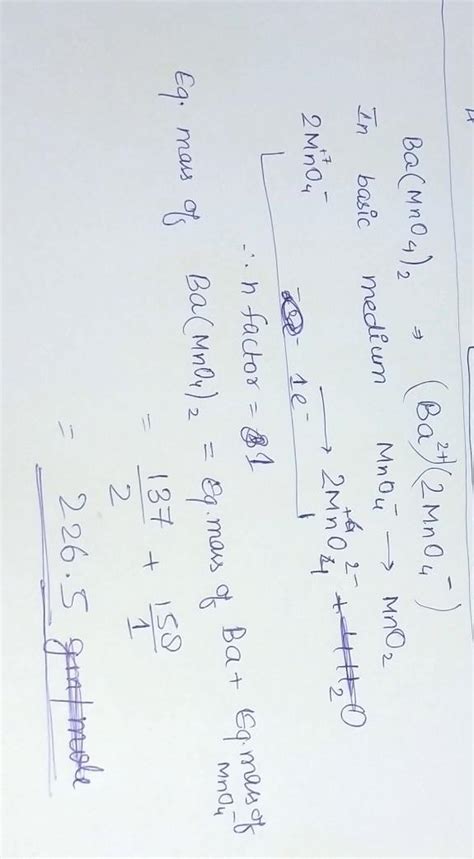 Ba(MnO4)2 → (Ba2+)(2MnO4-)
In basic medium MnO4- → MnO2
2MnO4- → 2MnO4 2- + 4H2O
+7 +6
- 1e-
∴ n factor = 1
Eq. mass of Ba(MnO4)2 = Eq. mass of Ba + Eq. mass of MnO4-
= 137/2 + 158/1
= 226.5 gm/mole